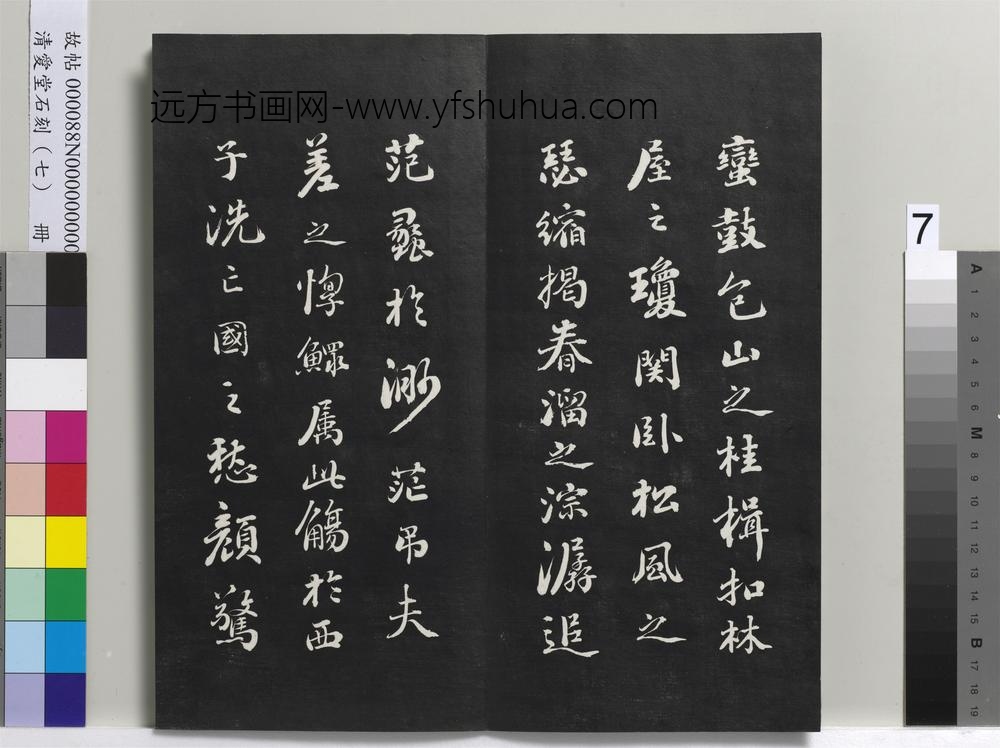 故帖 000088N000000000
清愛堂石刻（七） 冊
远方书画网-www.yfshuhua.com
蠻鼓包山之桂楫扣林
屋之瓊関卧松風之
瑟縮揭春溜之淙潺追
范蠡於渺茫弔夫
差之惸鰥属此觴於西
子洗亡國之愁顔驚
7
A
1
2
3
4
5
6
M
8
9
10
11
12
13
14
15
B
17
18
19